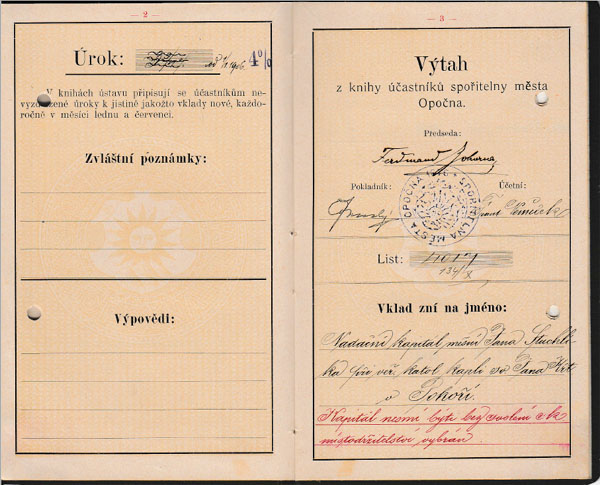 — 2 —
Úrok: 4%
V knihách ústavu připisují se účastníkům ne-
vyzdvižené úroky k jistině jakožto vklady nové, každo-
ročně v měsíci lednu a červenci.
Zvláštní poznámky:
Výpovědi:
— 3 —
Výtah
z knihy účastníků spořitelny města
Opočna.
Předseda:
Ferdinand
Pokladník: Účetní:
Frant
SPOŘITELNA MĚSTA OPOČNA
List:
134/X
Vklad zní na jméno:
Nadační kapitál mešní Jana Stuchlí-
ka při veř. katol. kapli sv. Jana Křt.
v Pohoří.
Kapitál nesmí býti bez svolení c.k.
místodržitelství vybrán.